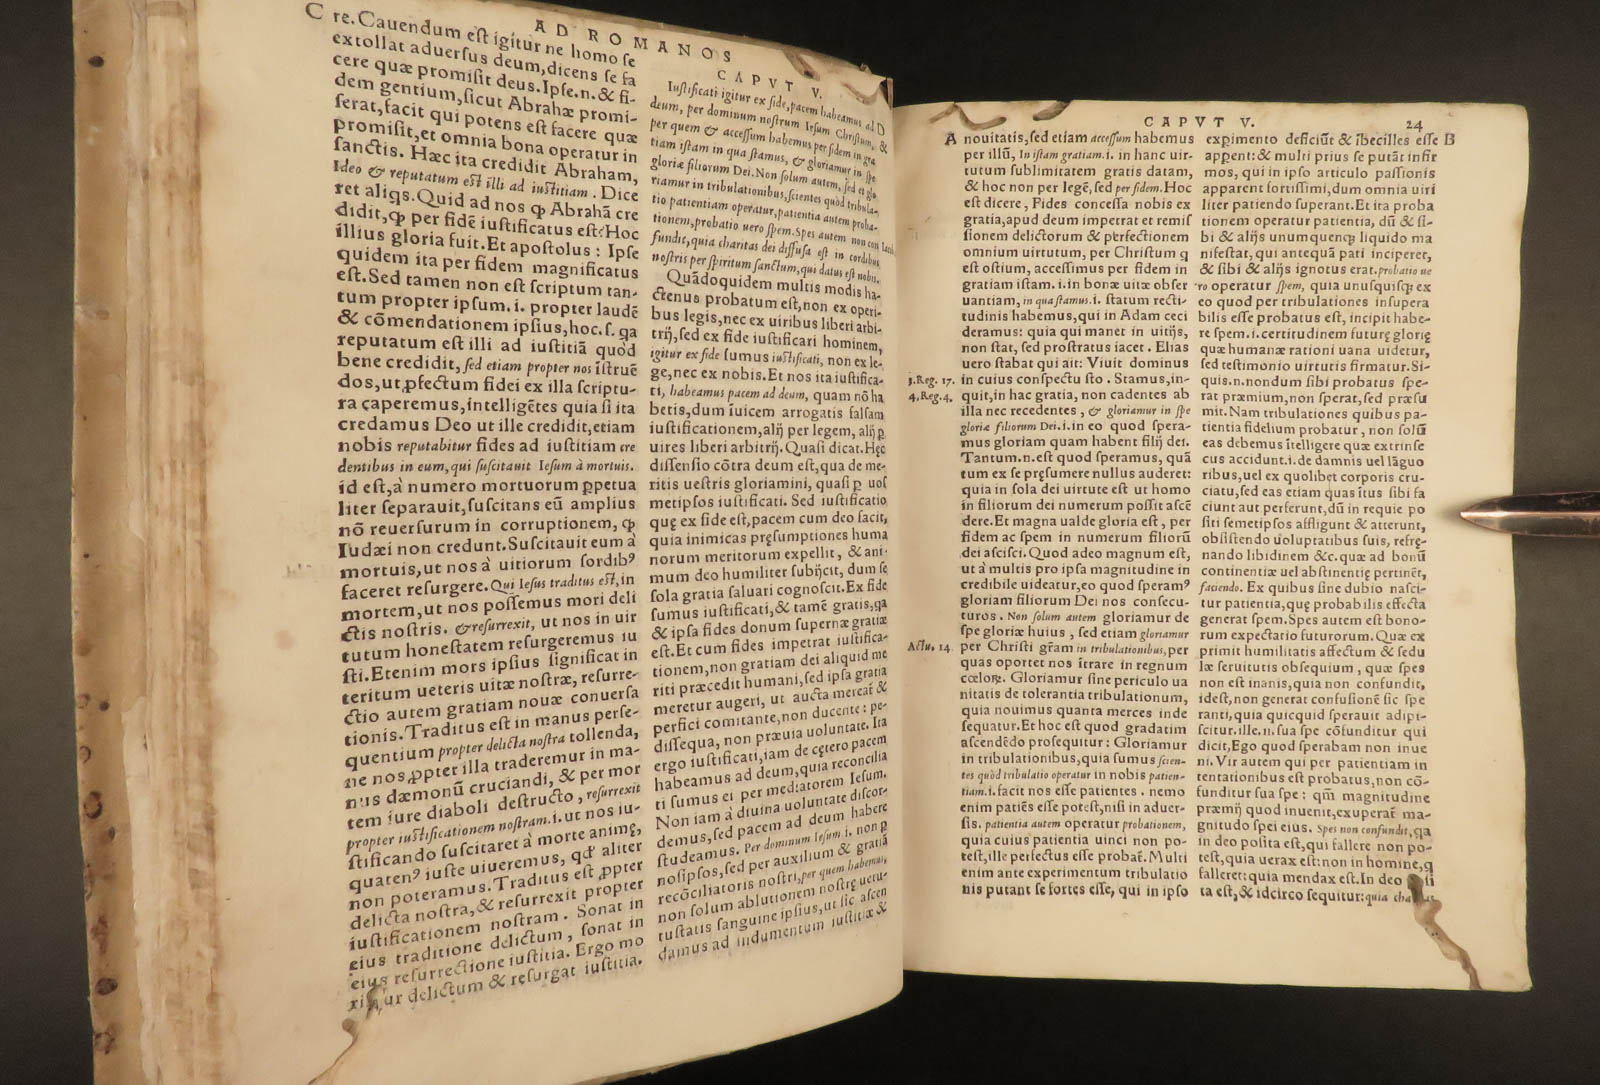 AD ROMANOS
C re. Cauendum eſt igitur ne homo ſe
extollat aduerſus deum, dicens ſe fa
cere quæ promiſit deus. Ipſe .n. & fi-
dem gentium, ſicut Abrahæ promi-
ſerat, facit qui potens eſt facere quæ
promiſit, et omnia bona operatur in
ſanctis. Hæc ita credidit Abraham,
Ideo & reputatum eſt illi ad iuſtitiam. Dice
ret aliqs. Quid ad nos ꝙ Abrahã cre
didit, ꝙ per fidẽ iuſtificatus eſt: Hoc
illius gloria fuit. Et apoſtolus: Ipſe
quidem ita per fidem magnificatus
eſt. Sed tamen non eſt ſcriptum tan-
tum propter ipſum .i. propter laudẽ
& cõmendationem ipſius, hoc. ſ. qa
reputatum eſt illi ad iuſtitiã quòd
bene credidit, ſed etiam propter nos ĩſtruẽ
dos, ut ꝑfectum fidei ex illa ſcriptu-
ra caperemus, intelligẽtes quia ſi ita
credamus Deo ut ille credidit, etiam
nobis reputabitur fides ad iuſtitiam cre
dentibus in eum, qui ſuſcitauit Ieſum à mortuis.
id eſt, à numero mortuorum ꝑpetua
liter ſeparauit, ſuſcitans eũ amplius
nõ reuerſurum in corruptionem, ꝙ
Iudæi non credunt. Suſcitauit eum à
mortuis, ut nos à uitiorum ſordibꝰ
faceret reſurgere. Qui Ieſus traditus eſt, in
mortem, ut nos poſſemus mori deli
ctis noſtris. & reſurrexit, ut nos in uir
tutum honeſtatem reſurgeremus iu
ſti. Etenim mors ipſius ſignificat in
teritum ueteris uitæ noſtræ, reſurre-
ctio autem gratiam nouæ conuerſa
tionis. Traditus eſt in manus perſe-
quentium propter delicta noſtra tollenda,
ne nos ꝓpter illa traderemur in ma-
nus dæmonũ cruciandi, & per mor
tem iure diaboli deſtructo, reſurrexit
propter iuſtificationem noſtram .i. ut nos iu-
ſtificando ſuſcitaret à morte animę,
quatenꝰ iuſte uiueremus, qď aliter
non poteramus. Traditus eſt ꝓpter
delicta noſtra, & reſurrexit propter
iuſtificationem noſtram. Sonat in
eius traditione delictum, ſonat in
eius reſurrectione iuſtitia. Ergo mo
delictum & reſurgat iuſtitia.
CAPVT V.
Iuſtificati igitur ex fide, pacem habeamus ad D
deum, per dominum noſtrum Ieſum Chriſtum,
per quem & acceſſum habemus per fidem in gra
tiam iſtam in qua ſtamus, & gloriamur in ſpe
gloriæ filiorum Dei. Non ſolum autem, ſed et glo
riamur in tribulationibus, ſcientes quòd tribula-
tio patientiam operatur, patientia autem proba-
tionem, probatio uero ſpem. Spes autem non con
fundit, quia charitas dei diffuſa eſt in cordibus
noſtris per ſpiritum ſanctum, qui datus eſt nobis.
Quãdoquidem multis modis ha-
ctenus probatum eſt, non ex operi-
bus legis, nec ex uiribus liberi arbi-
trij, ſed ex fide iuſtificari hominem,
igitur ex fide ſumus iuſtificati, non ex le-
ge, nec ex nobis. Et nos ita iuſtifica-
ti, habeamus pacem ad deum, quam nõ ha
betis, dum ĩuicem arrogatis falſam
iuſtificationem, alij per legem, alij ꝑ
uires liberi arbitrij. Quaſi dicat. Hęc
diſſenſio cõtra deum eſt, qua de me-
ritis ueſtris gloriamini, quaſi ꝑ uoſ
metipſos iuſtificati. Sed iuſtificatio
quę ex fide eſt, pacem cum deo facit,
quia inimicas pręſumptiones huma
norum meritorum expellit, & ani-
mum deo humiliter ſubijcit, dum ſe
ſola gratia ſaluari cognoſcit. Ex fide
ſumus iuſtificati, & tamẽ gratis, qa
& ipſa fides donum ſupernæ gratiæ
eſt. Et cum fides impetrat iuſtifica-
tionem, non gratiam dei aliquid me
riti præcedit humani, ſed ipſa gratia
meretur augeri, ut aucta mereat̃ &
perfici comitante, non ducente: pe-
diſſequa, non præuia uoluntate. Ita
ergo iuſtificati, iam de cętero pacem
habeamus ad deum, quia reconcilia
ti ſumus ei per mediatorem Ieſum.
Non iam à diuina uoluntate diſcor-
demus, ſed pacem ad deum habere
ſtudeamus. Per dominum Ieſum .i. non ꝑ
noſipſos, ſed per auxilium & gratiã
recõciliatoris noſtri, per quem habemus,
non ſolum ablutionem noſtrę uetu-
ſtatis ſanguine ipſius, ut ſic aſcen
damus ad indumentum iuſtitiæ &
CAPVT V. 24
A nouitatis, ſed etiam acceſſum habemus
per illũ, In iſtam gratiam .i. in hanc uir-
tutum ſublimitatem gratis datam,
& hoc non per legẽ, ſed per fidem. Hoc
eſt dicere, Fides conceſſa nobis ex
gratia, apud deum impetrat et remiſ
ſionem delictorum & perfectionem
omnium uirtutum, per Chriſtum q
eſt oſtium, acceſſimus per fidem in
gratiam iſtam .i. in bonæ uitæ obſer
uantiam, in qua ſtamus .i. ſtatum recti-
tudinis habemus, qui in Adam ceci
deramus: quia qui manet in uitijs,
non ſtat, ſed proſtratus iacet. Elias
uero ſtabat qui ait: Viuit dominus
3. Reg. 17. in cuius conſpectu ſto. Stamus, in-
4. Reg. 4. quit, in hac gratia, non cadentes ab
illa nec recedentes, & gloriamur in ſpe
gloriæ filiorum Dei .i. in eo quod ſpera-
mus gloriam quam habent filij dei.
Tantum .n. eſt quod ſperamus, quã
tum ex ſe pręſumere nullus auderet:
quia in ſola dei uirtute eſt ut homo
in filiorum dei numerum poſſit aſcẽ
dere. Et magna ualde gloria eſt, per
fidem ac ſpem in numerum filiorũ
dei aſciſci. Quod adeo magnum eſt,
ut à multis pro ipſa magnitudine in
credibile uideatur, eo quod ſperamꝰ
gloriam filiorum Dei nos conſecu-
turos. Non ſolum autem gloriamur de
ſpe gloriæ huius, ſed etiam gloriamur
Actu. 14. per Chriſti grãm in tribulationibus, per
quas oportet nos ĩtrare in regnum
cœloꝝ. Gloriamur ſine periculo ua
nitatis de tolerantia tribulationum,
quia nouimus quanta merces inde
ſequatur. Et hoc eſt quod gradatim
aſcendẽdo proſequitur: Gloriamur
in tribulationibus, quia ſumus ſcien-
tes quòd tribulatio operatur in nobis patien-
tiam .i. facit nos eſſe patientes. nemo
enim patiẽs eſſe poteſt, niſi in aduer-
ſis. patientia autem operatur probationem,
quia cuius patientia uinci non po-
teſt, ille perfectus eſſe probat̃. Multi
enim ante experimentum tribulatio
nis putant ſe fortes eſſe, qui in ipſo
expimento deficiũt & ĩbecilles eſſe B
appent: & multi prius ſe putãt infir
mos, qui in ipſo articulo paſſionis
apparent fortiſſimi, dum omnia uiri
liter patiendo ſuperant. Et ita proba
tionem operatur patientia, dũ & ſi-
bi & alijs unumquenꝙ liquido ma
nifeſtat, qui antequã pati inciperet,
& ſibi & alijs ignotus erat. probatio ue
ro operatur ſpem, quia unuſquiſꝙ ex
eo quod per tribulationes inſupera
bilis eſſe probatus eſt, incipit habe-
re ſpem .i. certitudinem futurę glorię
quæ humanæ rationi uana uidetur,
ſed teſtimonio uirtutis firmatur. Si-
quis .n. nondum ſibi probatus ſpe-
rat præmium, non ſperat, ſed præſu
mit. Nam tribulationes quibus pa-
tientia fidelium probatur, non ſolũ
eas debemus ĩtelligere quæ extrinſe
cus accidunt .i. de damnis uel lãguo
ribus, uel ex quolibet corporis cru-
ciatu, ſed eas etiam quas ĩtus ſibi fa
ciunt aut perferunt, dũ in requie po
ſiti ſemetipſos affligunt & atterunt,
obſiſtendo uoluptatibus ſuis, refrę-
nando libidinem &c. quæ ad bonũ
continentiæ uel abſtinentię pertinẽt,
faciendo. Ex quibus ſine dubio naſci-
tur patientia, quę probabilis effecta
generat ſpem. Spes autem eſt bono-
rum expectatio futurorum. Quæ ex
primit humilitatis affectum & ſedu
læ ſeruitutis obſequium, quæ ſpes
non eſt inanis, quia non confundit,
ideſt, non generat confuſionẽ ſic ſpe
ranti, quia quicquid ſperauit adipi-
ſcitur. ille .n. ſua ſpe cõfunditur qui
dicit, Ego quod ſperabam non inue
ni. Vir autem qui per patientiam in
tentationibus eſt probatus, non cõ-
funditur ſua ſpe: qm̃ magnitudine
præmij quod inuenit, exuperat̃ ma-
gnitudo ſpei eius. Spes non confundit, qa
in deo poſita eſt, qui fallere non po-
teſt, quia uerax eſt: non in homine, q
falleret: quia mendax eſt. In deo
ta eſt, & idcirco ſequitur: quia